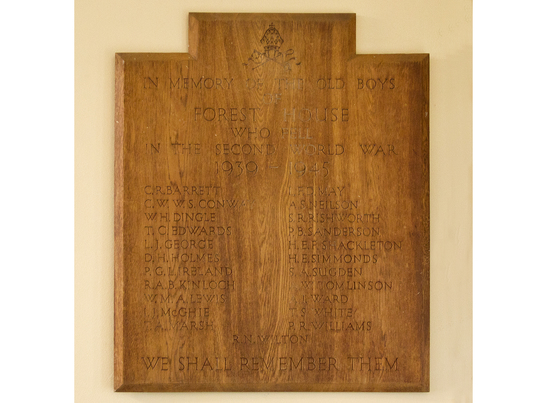 IN MEMORY OF THE OLD BOYS
OF
FOREST HOUSE
WHO FELL
IN THE SECOND WORLD WAR
1939 - 1945
C.R.BARRETT
C.W.W.S.CONWAY
W.H.DINGLE
T.C.EDWARDS
L.J.GEORGE
D.H.HOLMES
P.G.L.IRELAND
R.A.B.KINLOCH
W.M.A.LEWIS
J.J.McGHIE
T.A.MARSH
MAY
A.S.NEILSON
S.R.RISHWORTH
P.B.SANDERSON
H.E.F.SHACKLETON
H.E.SIMMONDS
S.A.SUGDEN
W.TOMLINSON
WARD
S.WHITE
P.R.WILLIAMS
R.N.WILTON
WE SHALL REMEMBER THEM